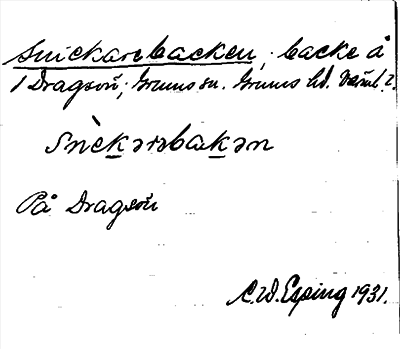 Snickarebacken; backe å
/ Dragsön; Grums sn. Grums hd. Värml.
Snèk̲ərəbak̲ən
På Dragsön
C.W. Esping 1931.